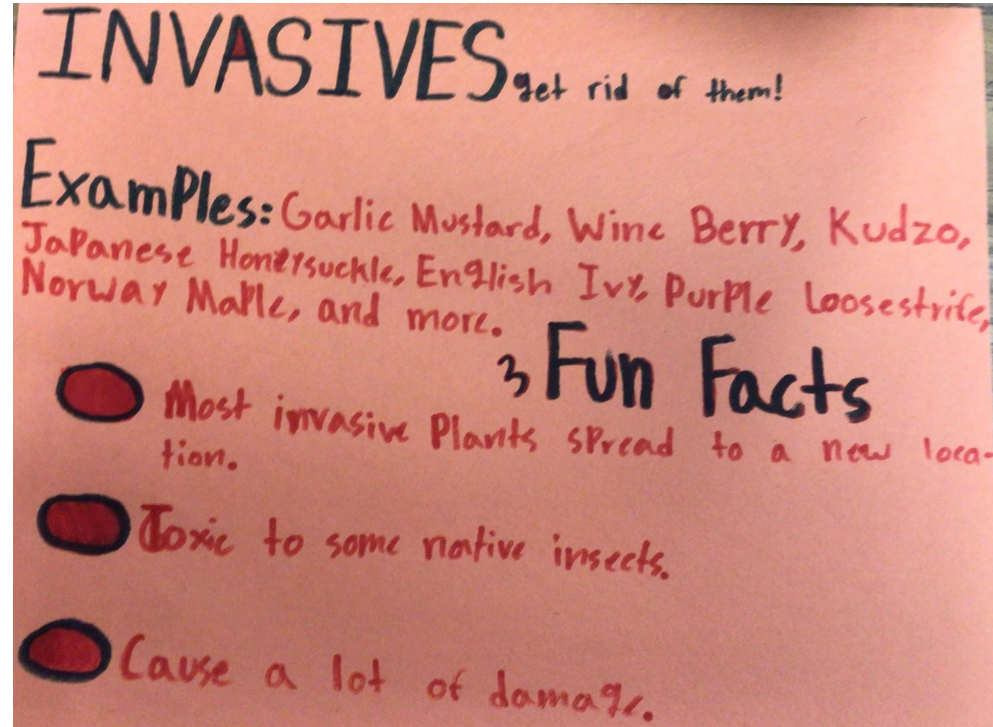 INVASIVES get rid of them!
Examples: Garlic Mustard, Wine Berry, Kudzo,
Japanese Honeysuckle, English Ivy, Purple Loosestrife,
Norway Maple, and more.
3 Fun Facts
Most invasive Plants spread to a new loca-
tion.
Toxic to some native insects.
Cause a lot of damage.